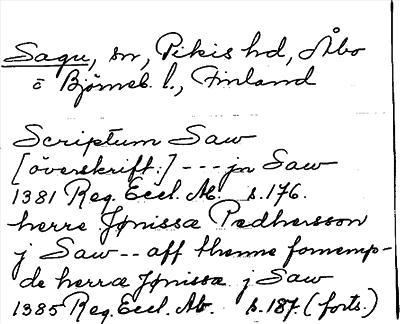 Sagu, sn, Pikis hd, Åbo
o Björneb. l., Finland
Scriptum Saw
[överskrift:] --- jn Saw
1381 Reg. Eccl. Ab. s. 176.
herre Jønissa Pedhersson
j Saw -- aff thenne fornemp-
de herra Jønissa j Saw
1385 Reg. Eccl. Ab. s. 187. (forts.)